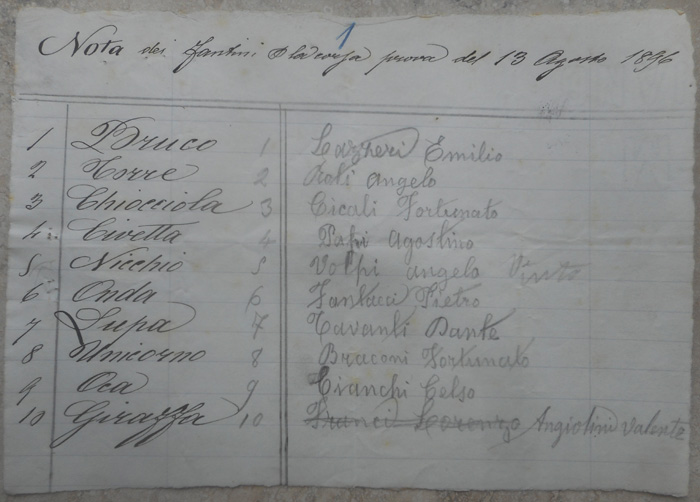 1
Nota dei Fantini P la corsa prova del 13 Agosto 1896
1 Bruco 1 Lazzeri Emilio
2 Torre 2 Roti Angelo
3 Chiocciola 3 Cicali Fortunato
4 Civetta 4 Papi Agostino
5 Nicchio 5 Volpi Angelo Vinto
6 Onda 6 Fantacci Pietro
7 Lupa 7 Tavanti Dante
8 Unicorno 8 Braconi Fortunato
9 Oca 9 Cianchi Celso
10 Giraffa 10 Franci Lorenzo Angiolini Valente